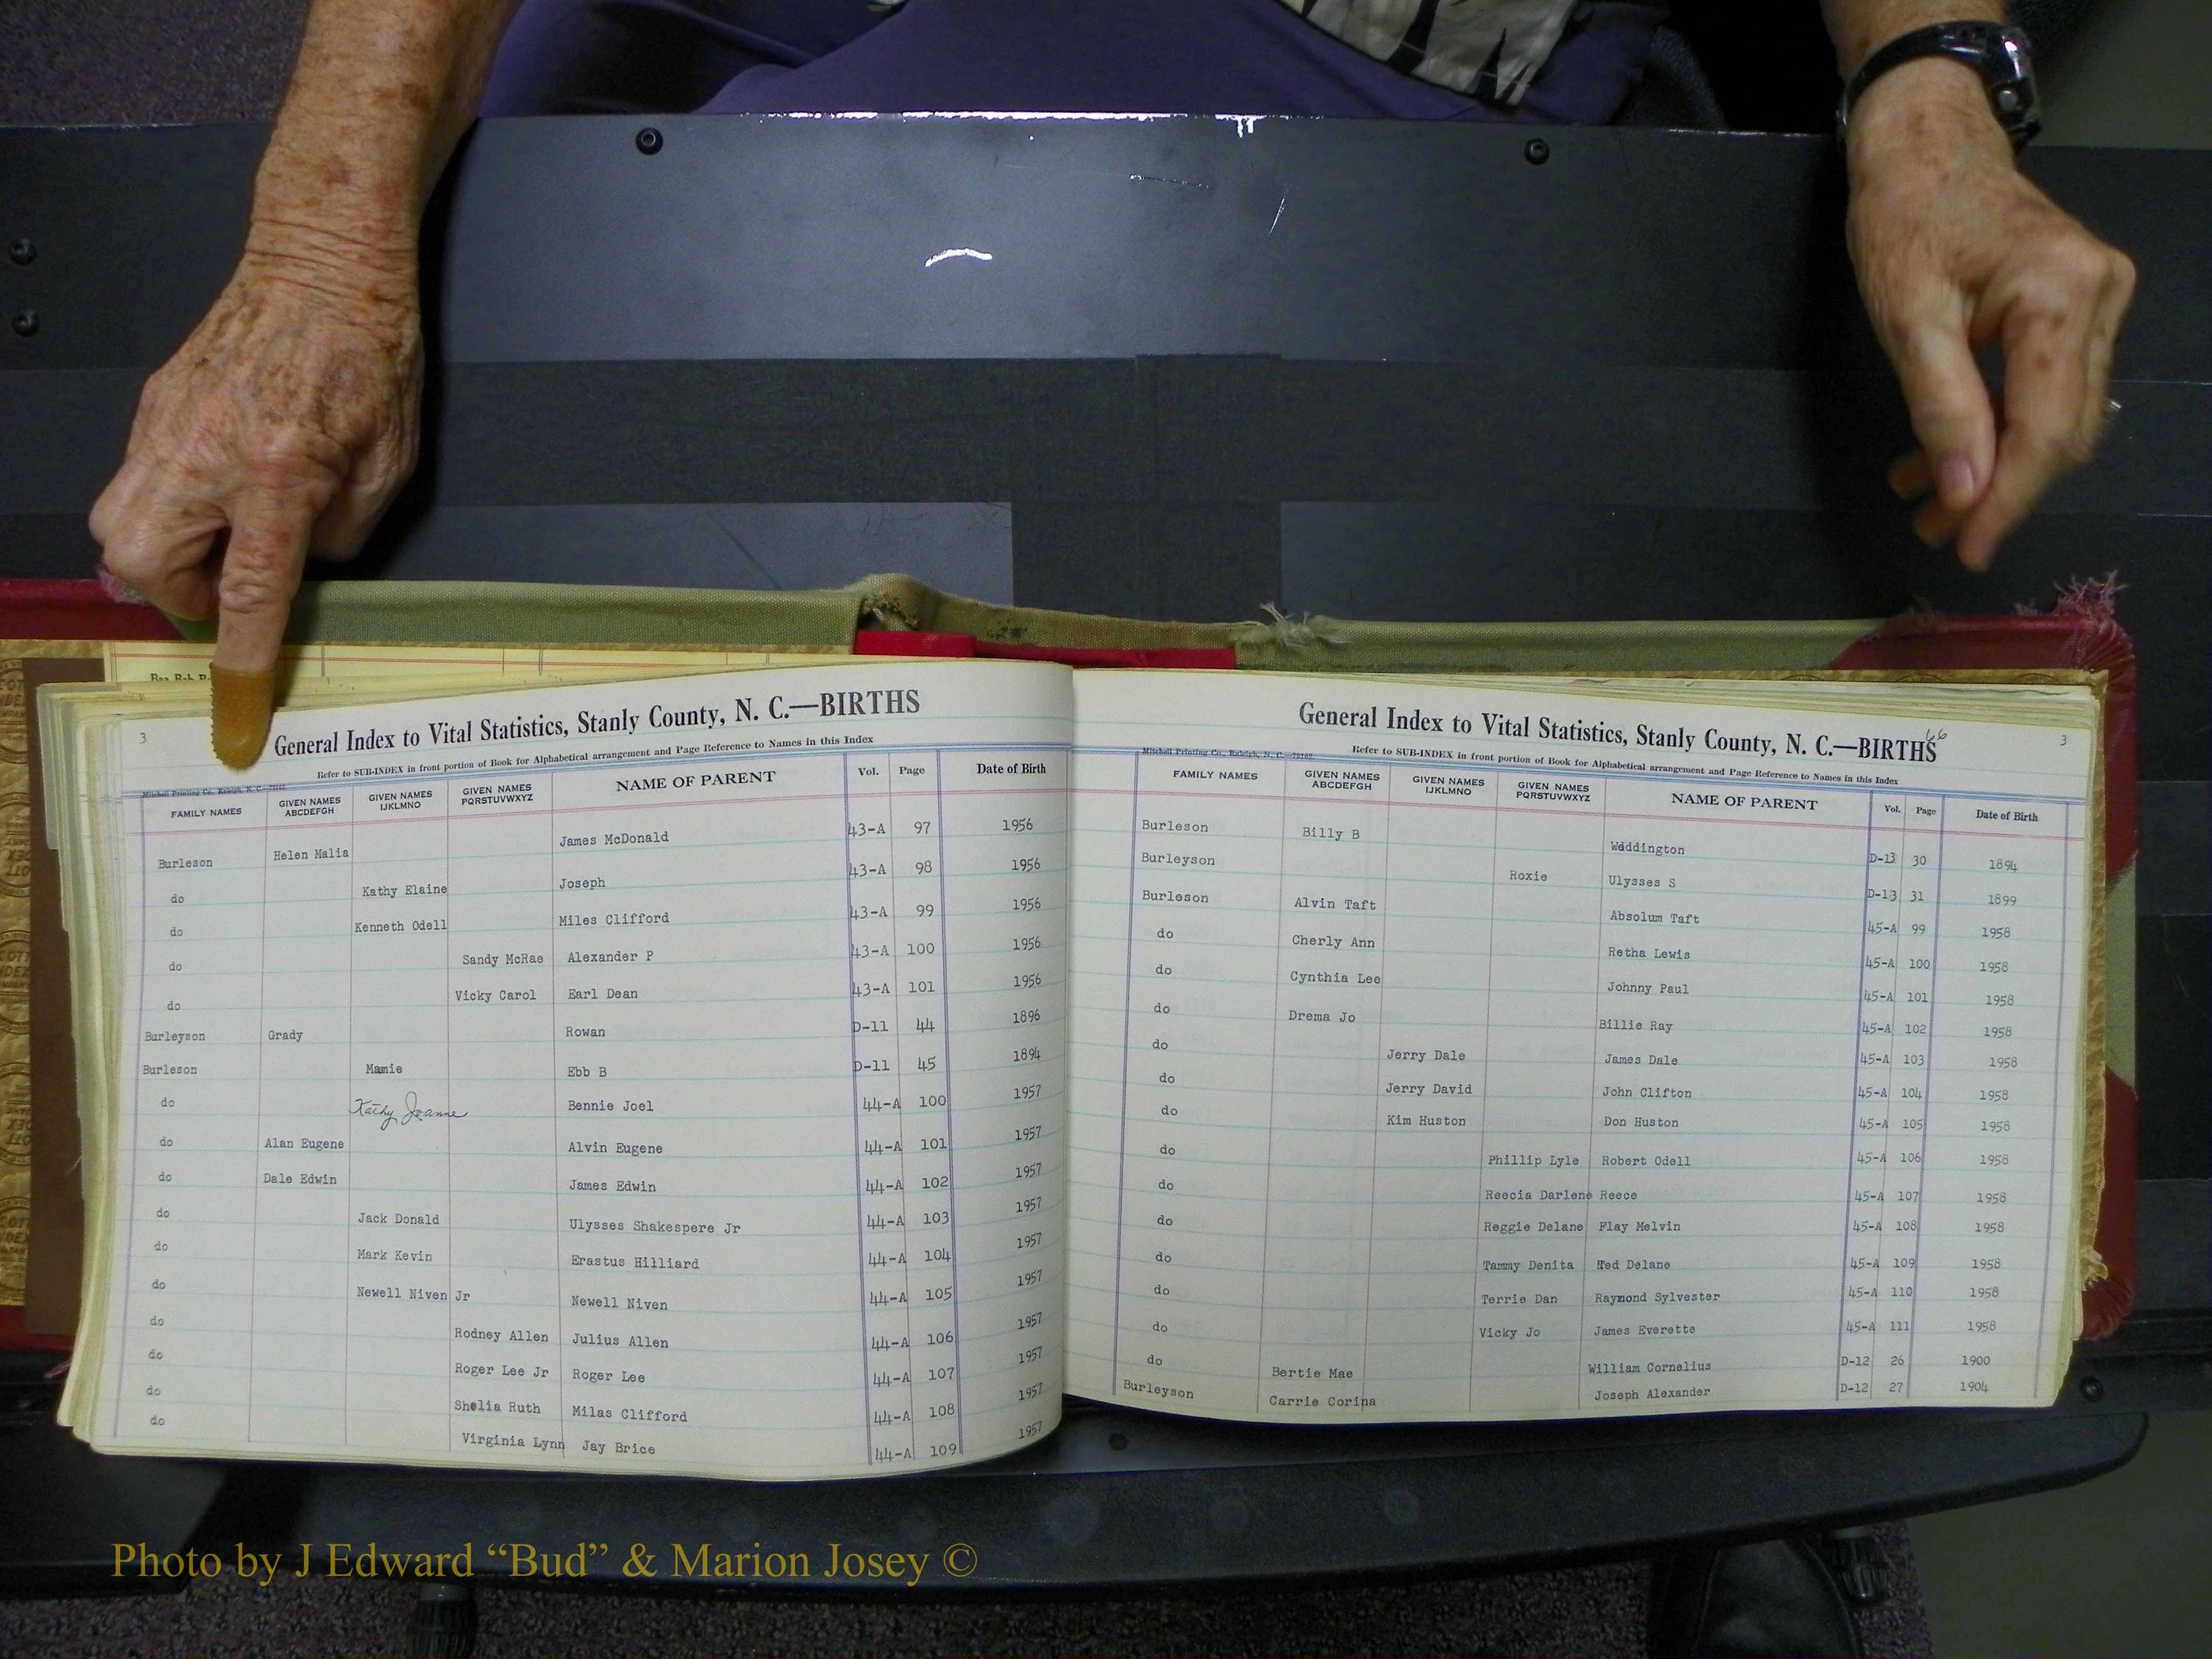 Bee Bob B
3
General Index to Vital Statistics, Stanly County, N. C.—BIRTHS
Refer to SUB-INDEX in front portion of Book for Alphabetical arrangement and Page Reference to Names in this Index
Mitchell Printing Co., Raleigh, N. C.
FAMILY NAMES GIVEN NAMES ABCDEFGH GIVEN NAMES IJKLMNO GIVEN NAMES PQRSTUVWXYZ NAME OF PARENT Vol. Page Date of Birth
Burleson Helen Malia James McDonald 43-A 97 1956
do Kathy Elaine Joseph 43-A 98 1956
do Kenneth Odell Miles Clifford 43-A 99 1956
do Sandy McRae Alexander P 43-A 100 1956
do Vicky Carol Earl Dean 43-A 101 1956
Burleyson Grady Rowan D-11 44 1896
Burleson Mamie Ebb B D-11 45 1894
do Kathy Joanne Bennie Joel 44-A 100 1957
do Alan Eugene Alvin Eugene 44-A 101 1957
do Dale Edwin James Edwin 44-A 102 1957
do Jack Donald Ulysses Shakespere Jr 44-A 103 1957
do Mark Kevin Erastus Hilliard 44-A 104 1957
do Newell Niven Jr Newell Niven 44-A 105 1957
do Rodney Allen Julius Allen 44-A 106 1957
do Roger Lee Jr Roger Lee 44-A 107 1957
do Shelia Ruth Milas Clifford 44-A 108 1957
do Virginia Lynn Jay Brice 44-A 109 1957
66
3
General Index to Vital Statistics, Stanly County, N. C.—BIRTHS
Mitchell Printing Co., Raleigh, N. C.—75162
Refer to SUB-INDEX in front portion of Book for Alphabetical arrangement and Page Reference to Names in this Index
FAMILY NAMES GIVEN NAMES ABCDEFGH GIVEN NAMES IJKLMNO GIVEN NAMES PQRSTUVWXYZ NAME OF PARENT Vol. Page Date of Birth
Burleson Billy B Waddington D-13 30 1894
Burleyson Roxie Ulysses S D-13 31 1899
Burleson Alvin Taft Absolum Taft 45-A 99 1958
do Cherly Ann Retha Lewis 45-A 100 1958
do Cynthia Lee Johnny Paul 45-A 101 1958
do Drema Jo Billie Ray 45-A 102 1958
do Jerry Dale James Dale 45-A 103 1958
do Jerry David John Clifton 45-A 104 1958
do Kim Huston Don Huston 45-A 105 1958
do Phillip Lyle Robert Odell 45-A 106 1958
do Reecia Darlene Reece 45-A 107 1958
do Reggie Delane Flay Melvin 45-A 108 1958
do Tammy Denita Ted Delane 45-A 109 1958
do Terrie Dan Raymond Sylvester 45-A 110 1958
do Vicky Jo James Everette 45-A 111 1958
do Bertie Mae William Cornelius D-12 26 1900
Burleyson Carrie Corina Joseph Alexander D-12 27 1904
Photo by J Edward “Bud” & Marion Josey ©